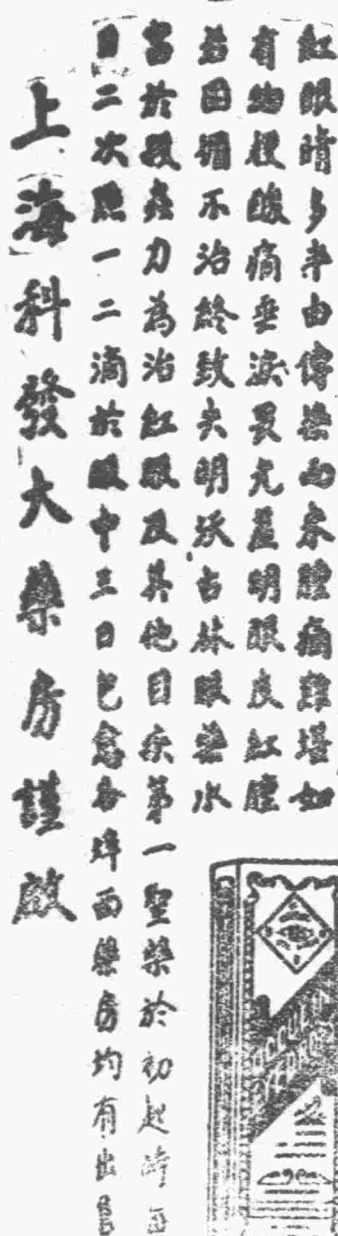 紅眼睛多半由傳染而來腫痛難堪如
有物梗酸痛垂淚畏光羞明眼皮紅腫
若因循不治終致失明沃古林眼藥水
富於殺蟲力為治紅眼及其他目疾第一聖藥於初起時每
日二次點一二滴於眼中三日包愈各埠西藥房均有出售
上海科發大藥房謹啟